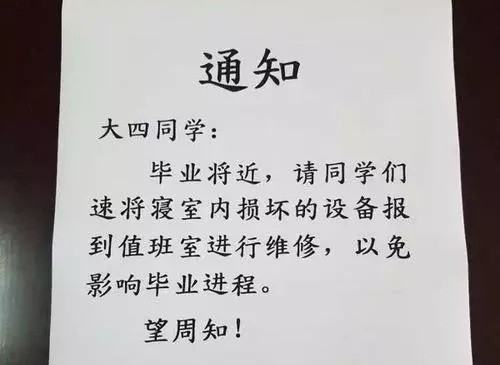 通知
大四同学：
毕业将近，请同学们
速将寝室内损坏的设备报
到值班室进行维修，以免
影响毕业进程。
望周知！